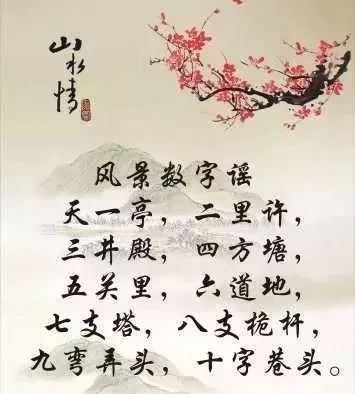 山水情
风景数字谣
天一亭，二里许，
三井殿，四方塘，
五关里，六道地，
七支塔，八支桅杆，
九弯弄头，十字巷头。